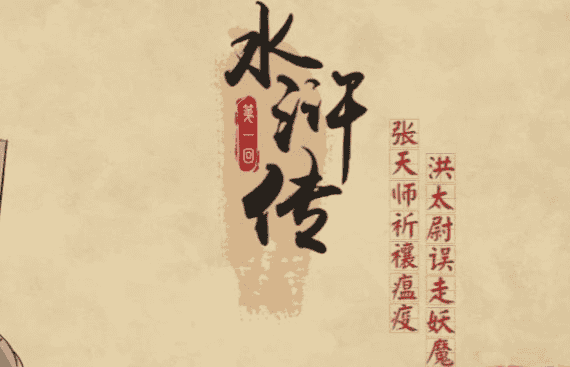 水浒传
第一回
张天师祈禳瘟疫
洪太尉误走妖魔